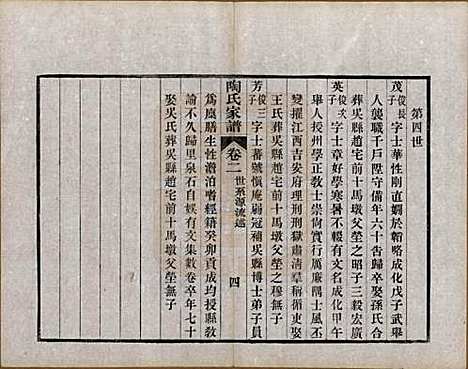 第四世
茂 俊長子 字士華性剛直嫺於韜略成化戊子武舉
人襲職千戶陞守備年六十告歸卒娶孫氏合
葬吳縣趙宅前十馬墩父塋之昭子三毅宏廣
英 俊次子 字士章好學寒暑不輟有文名成化甲午
舉人授州學正敎士崇尙實行厲廉隅士風丕
變擢江西吉安府理刑刑獄肅清羣稱循吏娶
王氏葬吳縣趙宅前十馬墩父塋之穆無子
陶氏家譜 卷二 世系源流述 四
芳 俊三子 字士蕃號愼庵弱冠補吳縣博士弟子員
爲廩膳生性澹泊嗜經籍癸卯貢成均授縣倅
不久歸里泉石自娛有文集數卷卒年七十
娶吳氏葬吳縣趙宅前十馬墩父塋無子